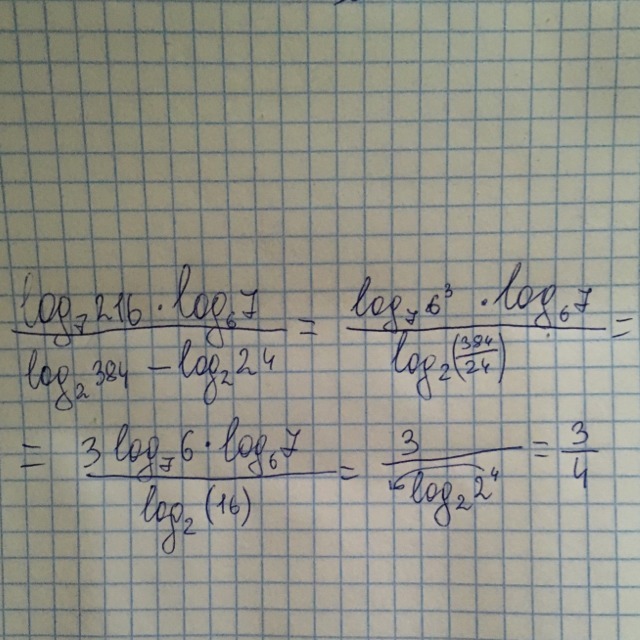 log₇216 · log₆7 / log₂384 − log₂24 = log₇6³ · log₆7 / log₂(384/24) =
= 3 log₇6 · log₆7 / log₂(16) = 3 / log₂2⁴ = 3/4